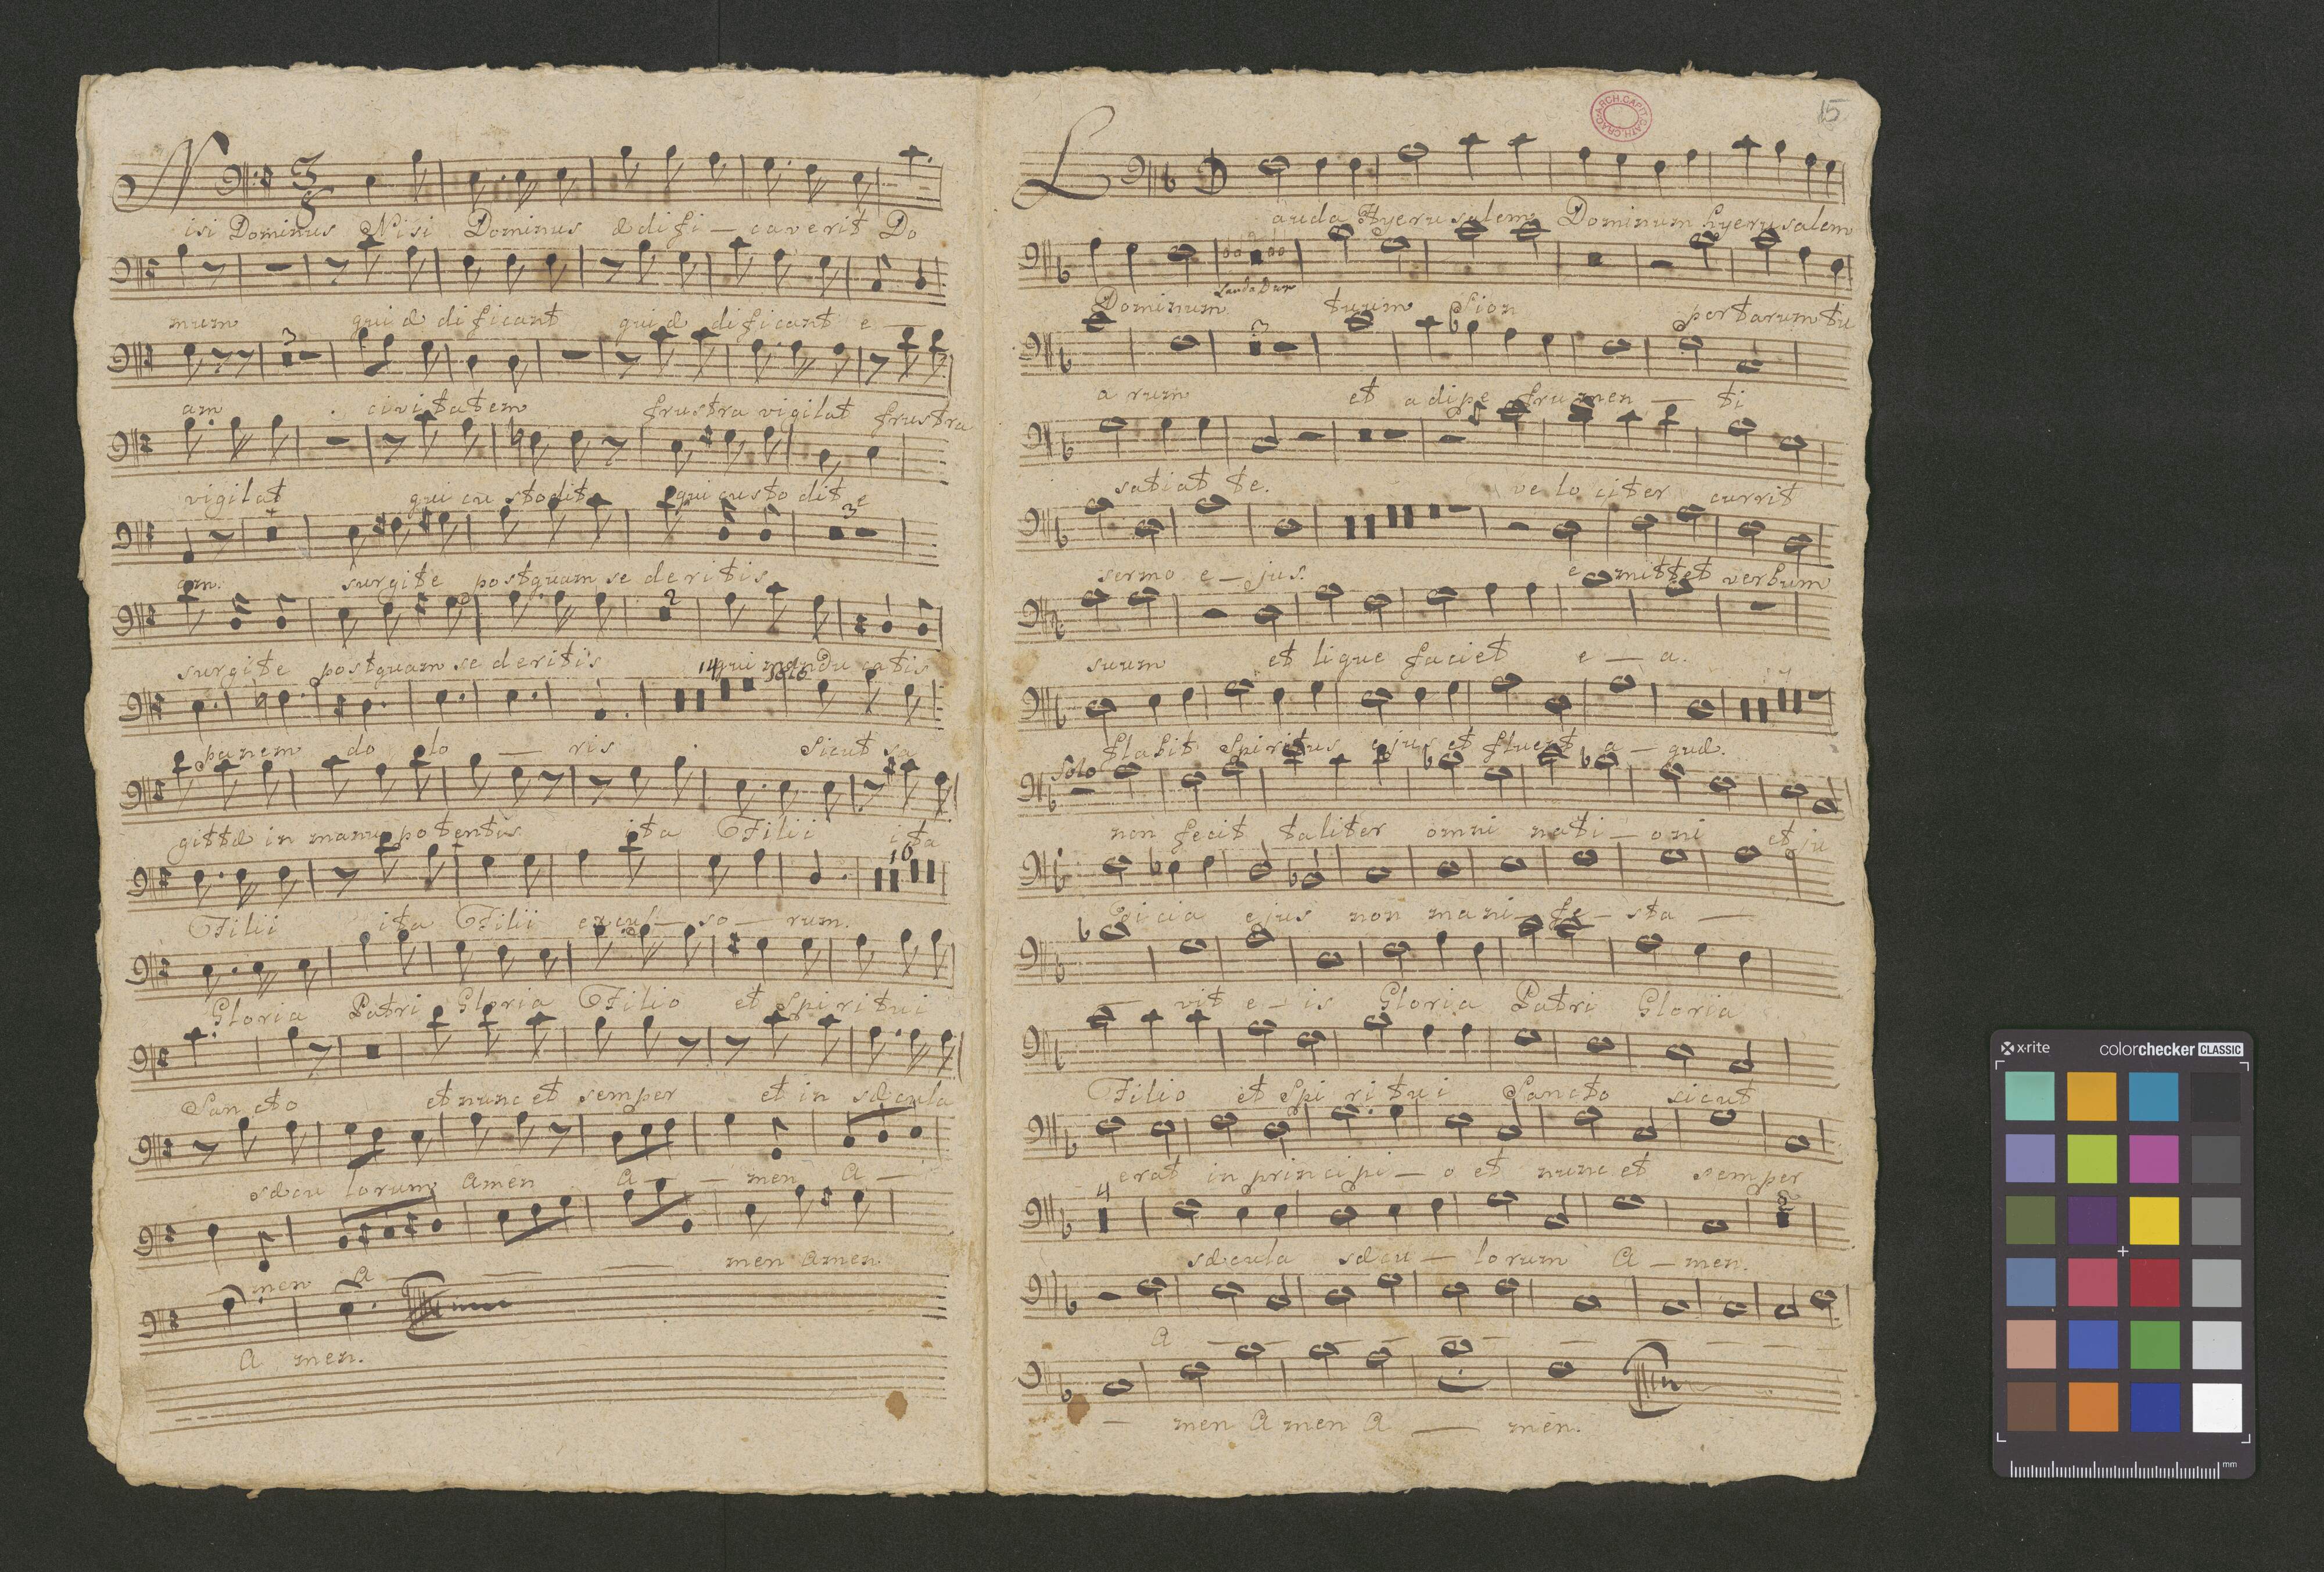 Nisi Dominus Nisi Dominus ædifi — caverit Do
num qui æ dificant qui æ dificant e —
3
am civitatem frustra vigilat frustra
vigilat qui custodit qui custodit e
3
am. surgite postquam se deritis
2
surgite postquam se deritis qui mandu catis
14 solo
panem do lo — ris Sicut sa
Solo
gittæ in manu potentis ita Filii ita
10
Filii ita Filii excus — so — rum.
Gloria Patri Gloria Filio et Spiritui
Sancto et nunc et semper et in sæcula
sæcu lorum Amen A — — men A —
men A — — men amen.
A men.
15
ARCH. CAPIT. CATH. CRAC.
Lauda Hyerusalem Dominum hyerusalem
Dominum Lauda Deum tuum Sion portarum tu
3
a rum et adipe frumen — ti
satiat te. velociter currit
sermo e — jus. e mittet verbum
suum et lique faciet e — a.
flabit Spiritus ejus et fluent a — quæ.
non fecit taliter omni nati — oni et ju
dicia ejus non mani — fe — sta —
— vit e — is Gloria Patri Gloria
Filio et Spi ritui Sancto sicut
erat in principi — o et nunc et semper
4
sæcula sæcu — lorum A — men.
A — — — — — —
— men Amen A — men.
x-rite
colorchecker CLASSIC
mm